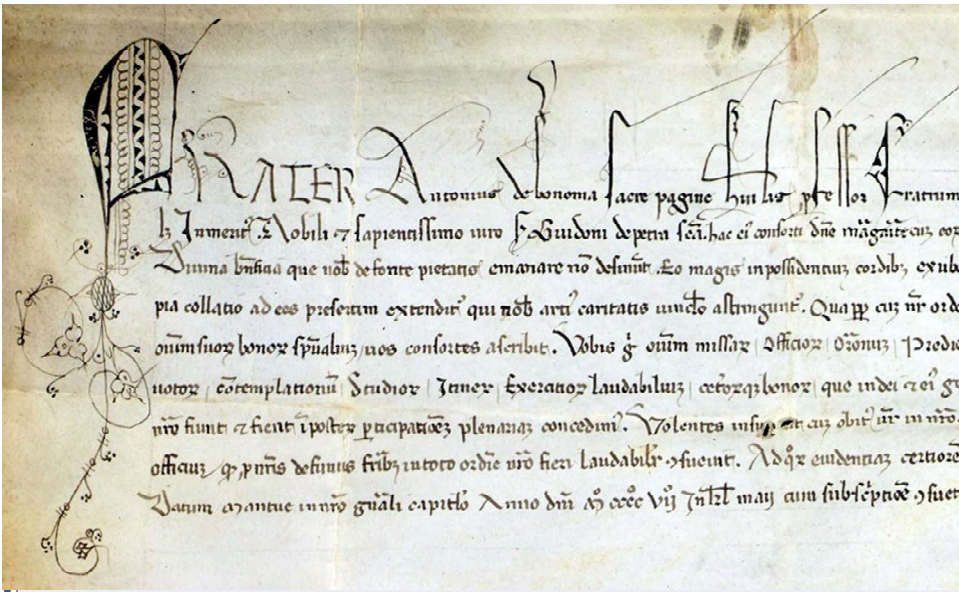 FRATER Antonius de bononia sacre pagine humilis pfessor Fratrum
lz Inmerit9 Nobili ⁊ sapientissimo uiro S Guidoni de petra sca hac ei9 consorti dne margarite cuz
Diuina bnficia que nob de fonte pietatis emanare no desinut Eo magis in possidentiuz cordibz
pia collatio ad eos presertim extendit' qui nob arti9 caritatis uinclo astringunt'. Qua pp cuz nr ord
oium suoꝝ bonoꝝ spualiuz uos consortes ascribit. Vobis g oium missaꝝ Officioꝝ Oronuz Predic
uotoꝝ contemplationu Studioꝝ Itineꝝ Exercitioꝝ laudabiliuz ceteroꝝqꝫ bonoꝝ que in dei ⁊ ei9
nro fiunt ⁊ fient i posteꝝ pticipatioez plenariaz concedim9. Volentes insup ut cuz obit9 ur in nro
officiuz qd p nris defunctis fribz in toto ordie nro fieri laudabilr ꝯsueuit. Ad qoꝝ euidentiaz certiore
Datum Mantue in nro gnali capitlo Anno dni Mo cccco vijo maij cum subscriptioe ꝯsuet